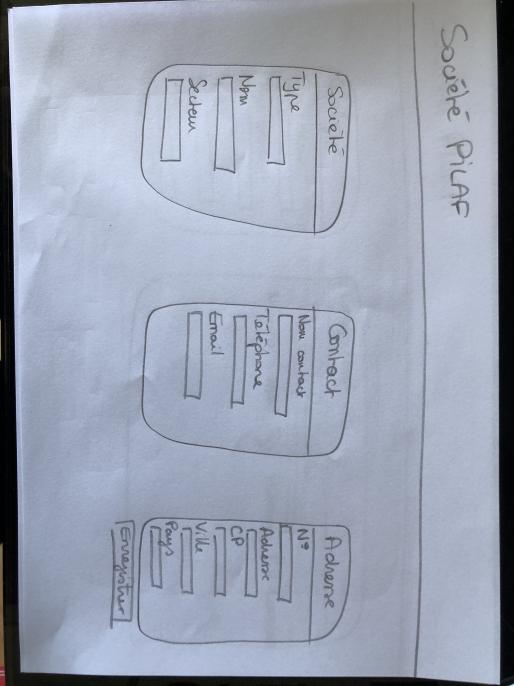 Société PiLAF
Société
Type
Nom
Secteur
Contact
Nom contact
Téléphone
Email
Adresse
N°
Adresse
CP
Ville
Pays
Enregistrer